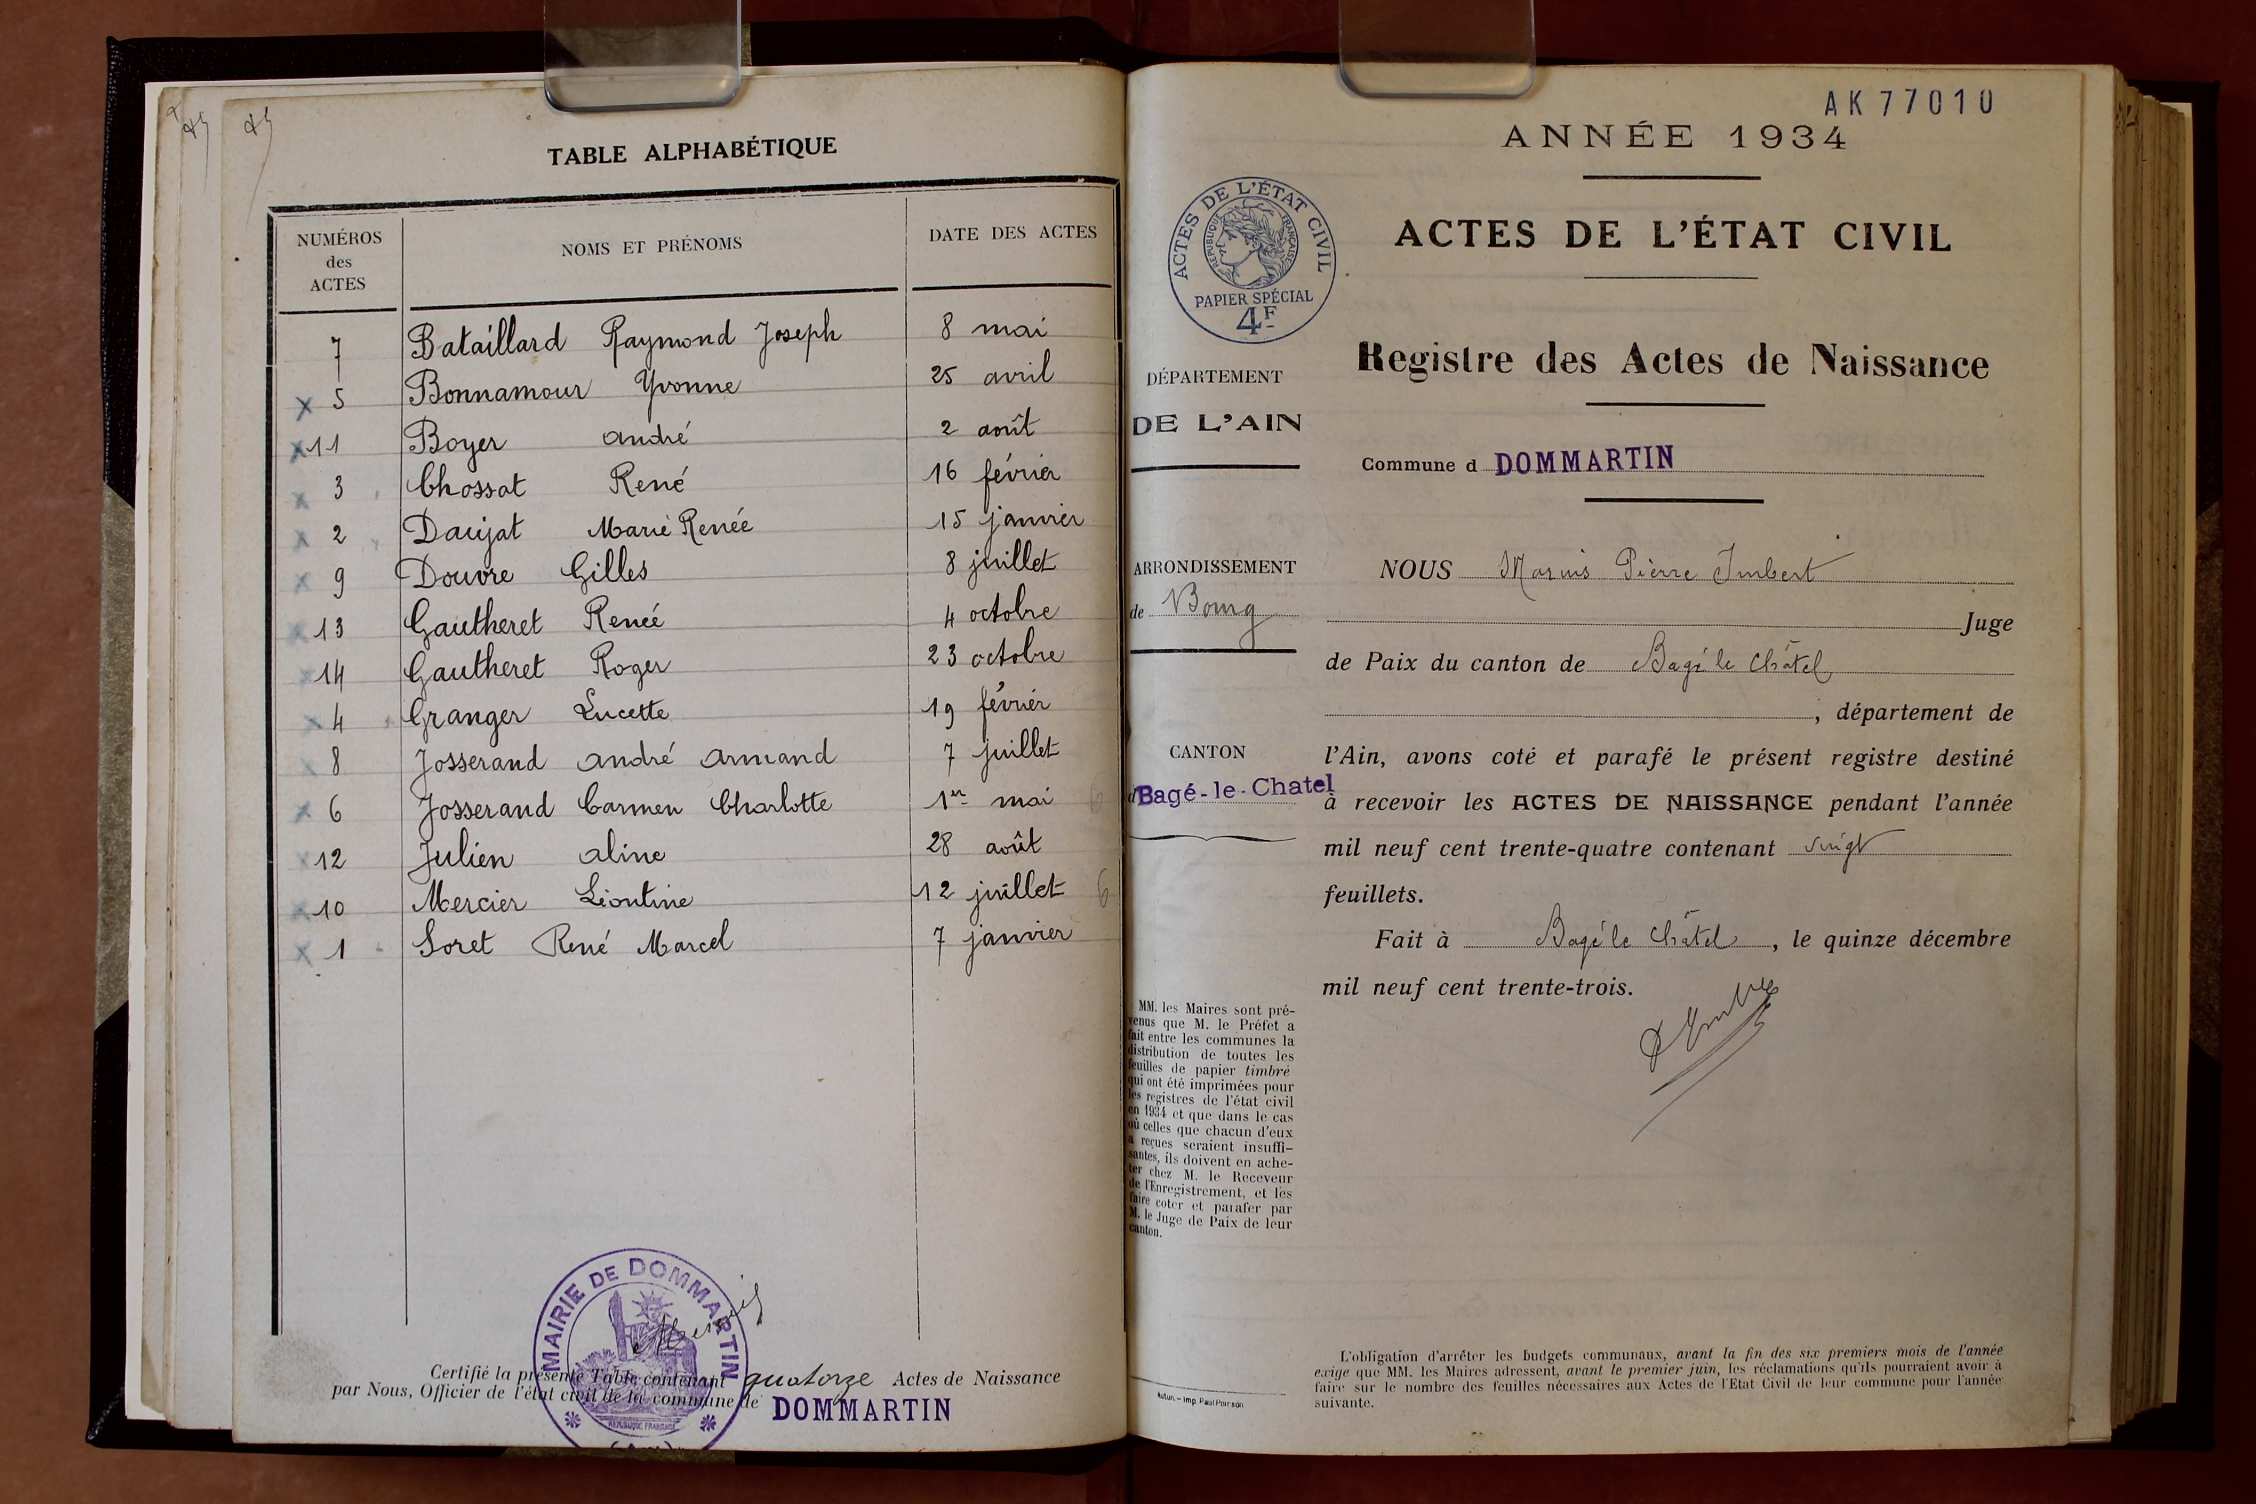 TABLE ALPHABÉTIQUE
NUMÉROS des ACTES
NOMS ET PRÉNOMS
DATE DES ACTES
7 Bataillard Raymond Joseph 8 mai
x 5 Bonnamour Yvonne 25 avril
x 11 Boyer André 2 août
x 3 Chossat René 16 février
x 2 Daujat Marie Renée 15 janvier
x 9 Douvre Gilles 8 juillet
x 13 Gautheret Renée 4 octobre
x 14 Gautheret Roger 23 octobre
x 4 Granger Lucette 19 février
x 8 Josserand André Armand 7 juillet
x 6 Josserand Carmen Charlotte 1er mai
x 12 Julien Aline 28 août
x 10 Mercier Léontine 12 juillet
x 1 Soret René Marcel 7 janvier
MAIRIE DE DOMMARTIN
RÉPUBLIQUE FRANÇAISE
Certifié la présente Table contenant quatorze Actes de Naissance
par Nous, Officier de l'état civil de la commune de DOMMARTIN
AK 77010
ANNÉE 1934
ACTES DE L'ÉTAT CIVIL
RÉPUBLIQUE FRANÇAISE
PAPIER SPÉCIAL
4F
ACTES DE L'ÉTAT CIVIL
Registre des Actes de Naissance
DÉPARTEMENT
DE L'AIN
Commune d DOMMARTIN
ARRONDISSEMENT
de Bourg
CANTON
d Bagé-le-Chatel
NOUS Marius Pierre Imbert
Juge
de Paix du canton de Bagé le Châtel
, département de
l'Ain, avons coté et parafé le présent registre destiné
à recevoir les ACTES DE NAISSANCE pendant l'année
mil neuf cent trente-quatre contenant vingt
feuillets.
Fait à Bagé le Châtel, le quinze décembre
mil neuf cent trente-trois.
MM. les Maires sont pré-
venus que M. le Préfet a
fait entre les communes la
distribution de toutes les
feuilles de papier timbré
qui ont été imprimées pour
les registres de l'état civil
en 1934 et que dans le cas
où celles que chacun d'eux
a reçues seraient insuffi-
santes, ils doivent en ache-
ter chez M. le Receveur
de l'Enregistrement, et les
faire coter et parafer par
M. le Juge de Paix de leur
canton.
Autun. — Imp. Paul Poirson
L'obligation d'arrêter les budgets communaux, avant la fin des six premiers mois de l'année
exige que MM. les Maires adressent, avant le premier juin, les réclamations qu'ils pourraient avoir à
faire sur le nombre des feuilles nécessaires aux Actes de l'Etat Civil de leur commune pour l'année
suivante.